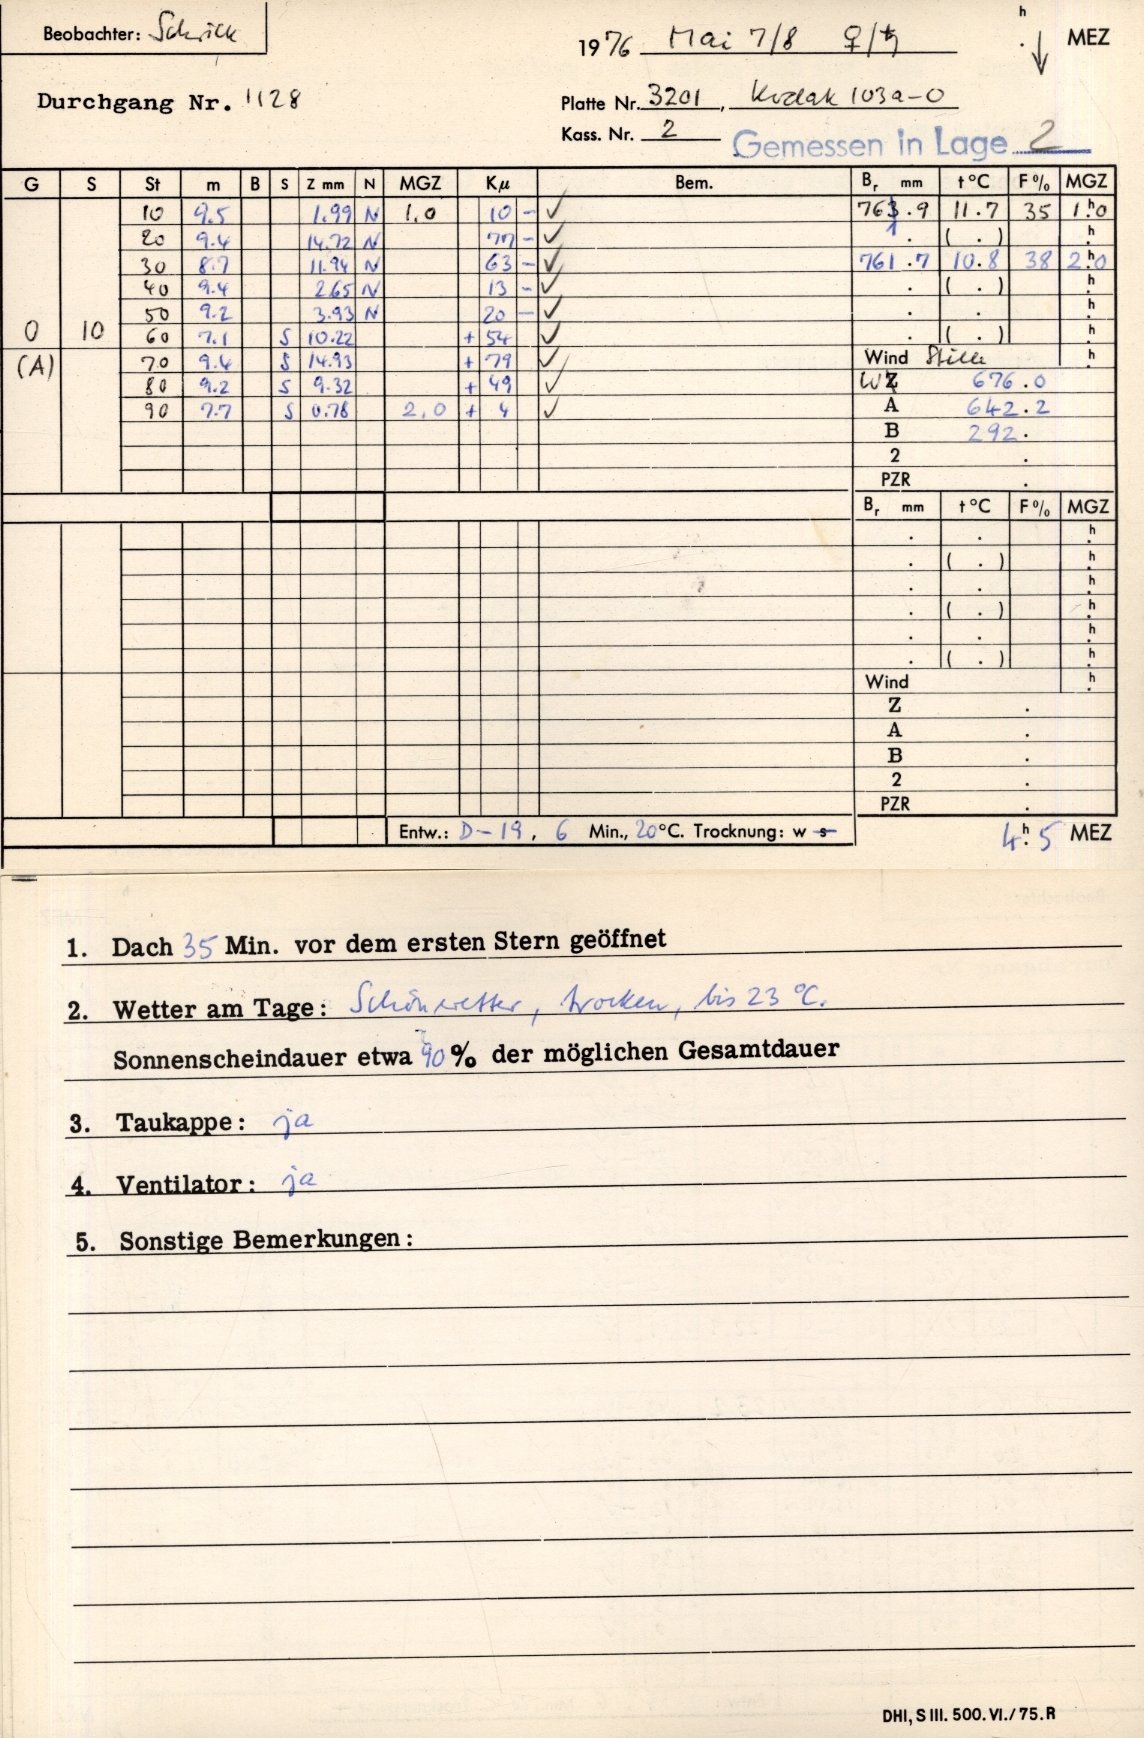 Beobachter: Schrick
1976 Mai 7/8 ♀/♄ h . ↓ MEZ
Durchgang Nr. 1128
Platte Nr. 3201, Kodak 103a-O
Kass. Nr. 2 Gemessen in Lage 2
G S St m B S Z mm N MGZ Kμ Bem. Br mm t°C F% MGZ
10 9.5 1.99 N 1,0 10 – ✓ 763.9 11.7 35 1h.0
20 9.4 14.72 N 77 – ✓ 1 . ( . ) h.
30 8.7 11.94 N 63 – ✓ 761.7 10.8 38 2h.0
40 9.4 2.65 N 13 – ✓ . ( . ) h.
50 9.2 3.93 N 20 – ✓ . . h.
0 10 60 7.1 S 10.22 + 54 ✓ . ( . ) h.
(A) 70 9.4 S 14.93 + 79 ✓ Wind Stille h.
80 9.2 S 9.32 + 49 ✓ WZ 676.0
90 7.7 S 0.78 2,0 + 4 ✓ A 642.2
B 292.
2 .
PZR .
Br mm t°C F% MGZ
. . h.
. ( . ) h.
. . h.
. ( . ) h.
. . h.
. ( . ) h.
Wind h.
Z .
A .
B .
2 .
PZR .
Entw.: D-19, 6 Min., 20°C. Trocknung: w s 4h.5 MEZ
1. Dach 35 Min. vor dem ersten Stern geöffnet
2. Wetter am Tage: Schönwetter, trocken, bis 23 °C.
Sonnenscheindauer etwa 90% der möglichen Gesamtdauer
3. Taukappe: ja
4. Ventilator: ja
5. Sonstige Bemerkungen:
DHI, S III. 500. VI./75. R